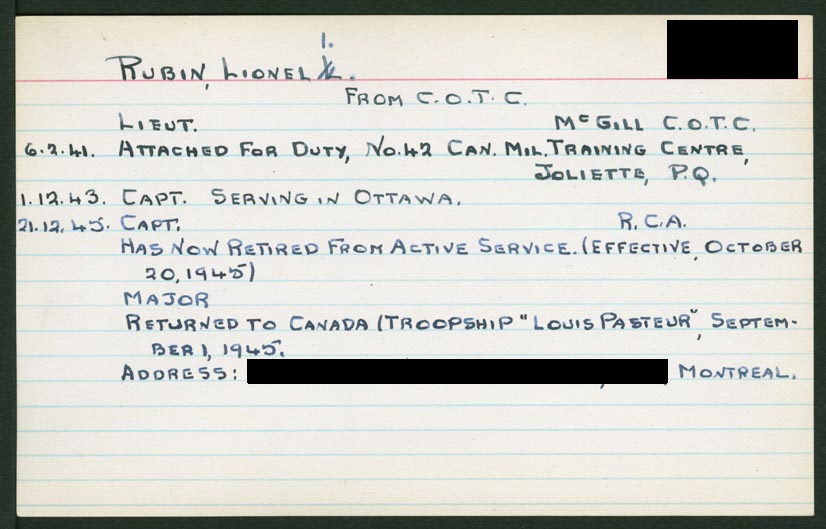 1.
RUBIN, LIONEL
FROM C.O.T.C.
LIEUT. McGILL C.O.T.C.
6.2.41. ATTACHED FOR DUTY, NO.42 CAN. MIL. TRAINING CENTRE,
JOLIETTE, P.Q.
1.12.43. CAPT. SERVING IN OTTAWA.
21.12.45. CAPT. R.C.A.
HAS NOW RETIRED FROM ACTIVE SERVICE. (EFFECTIVE, OCTOBER
20, 1945)
MAJOR
RETURNED TO CANADA (TROOPSHIP "LOUIS PASTEUR", SEPTEM-
BER 1, 1945.
ADDRESS: MONTREAL.